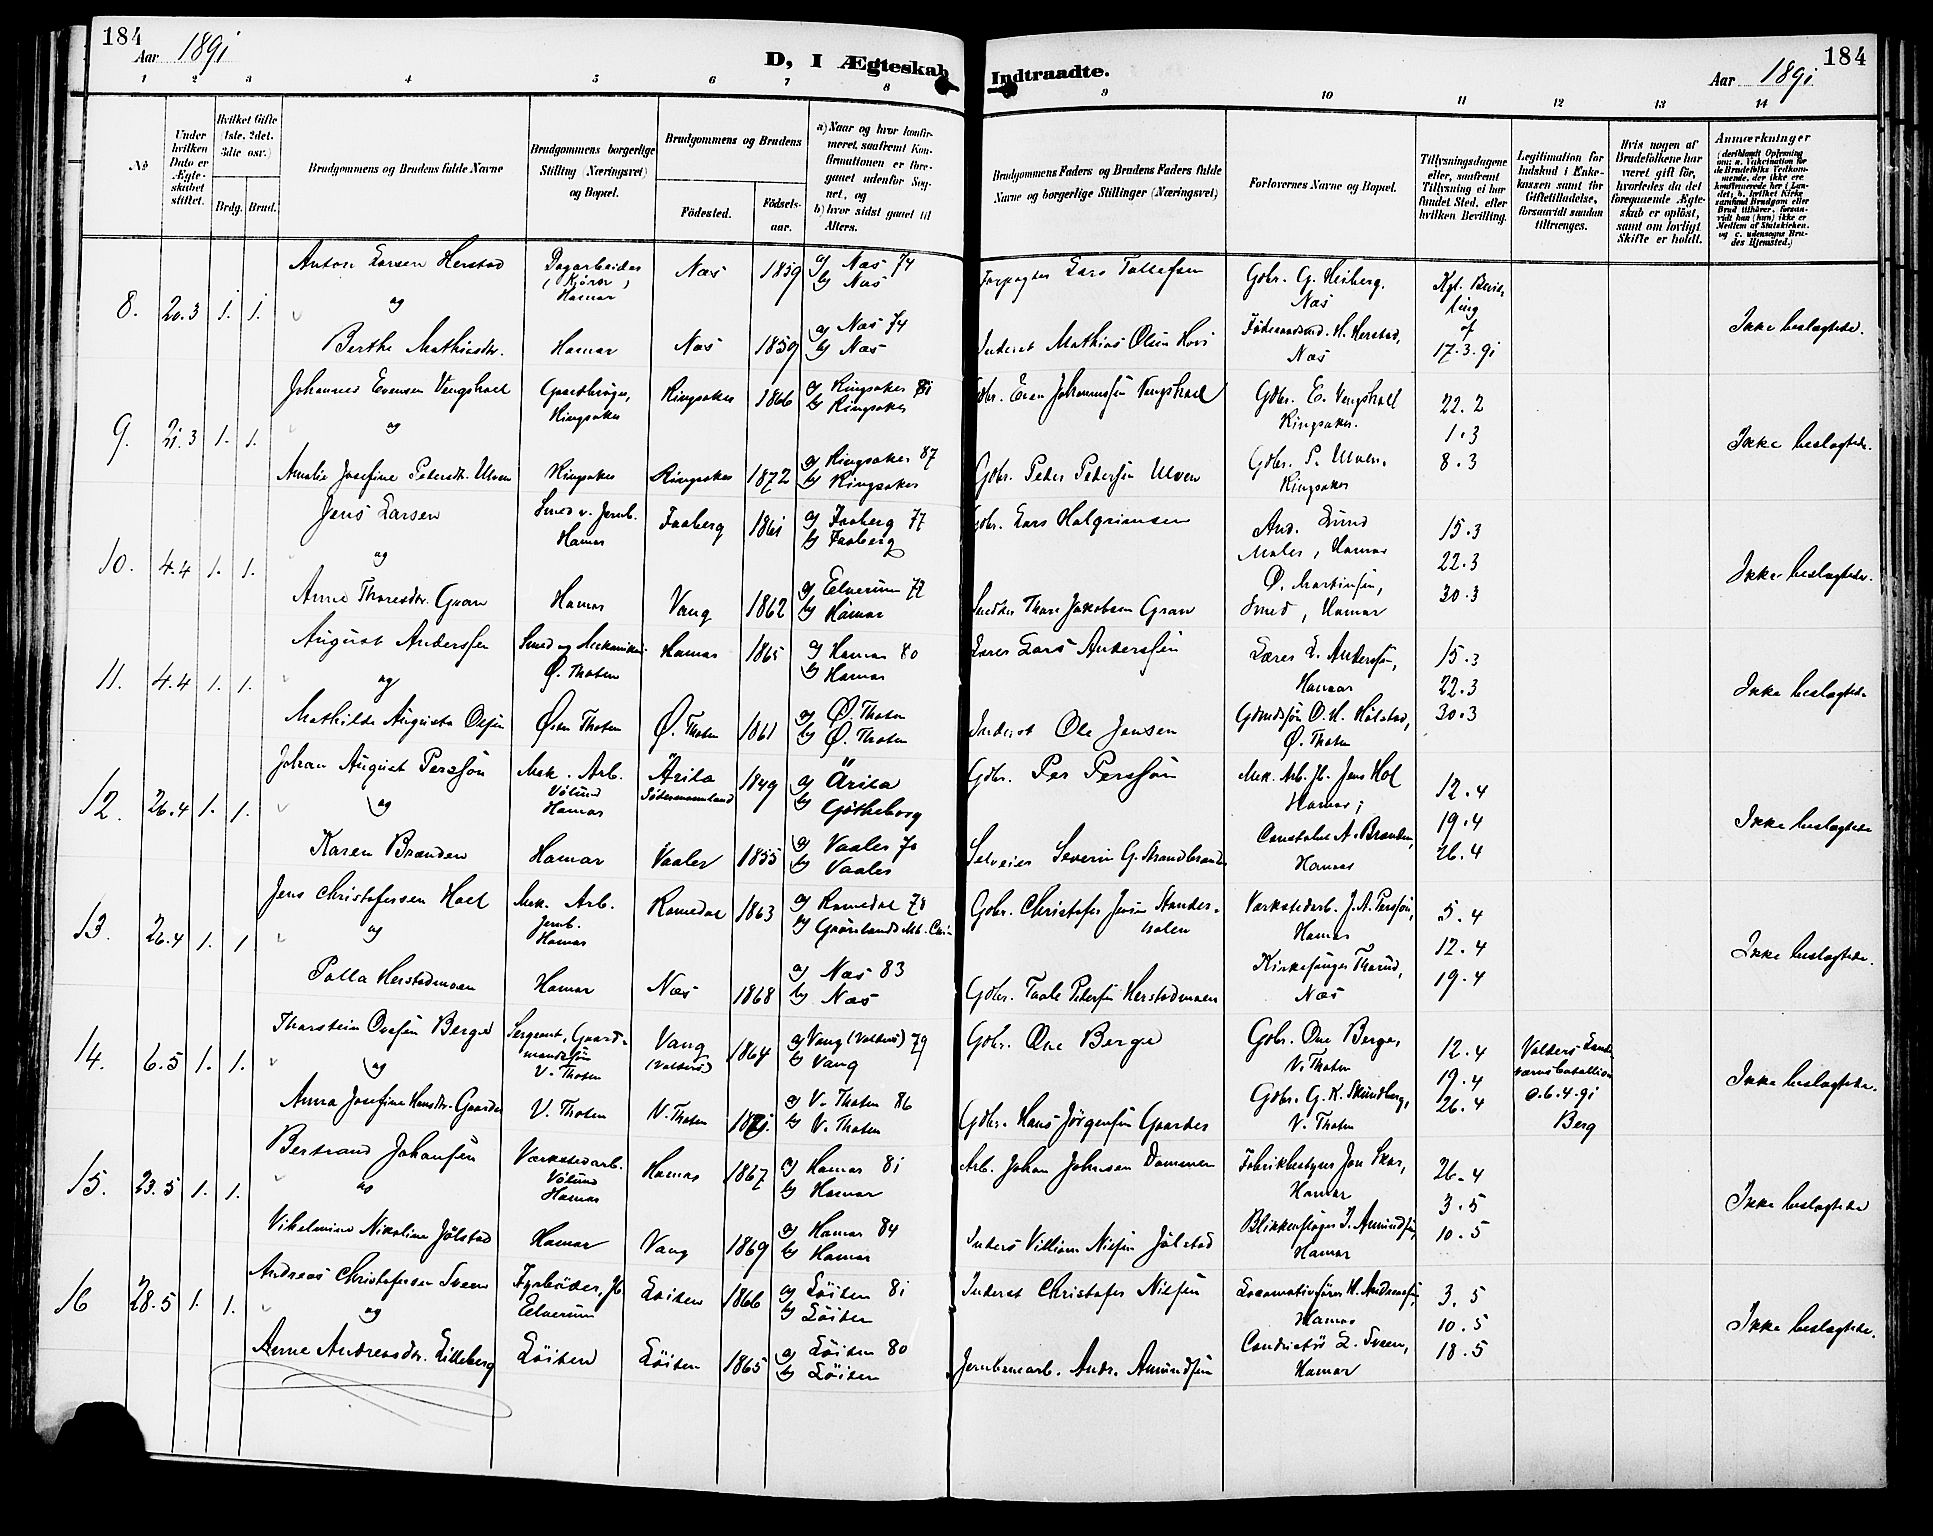 184
Aar 1891
D, I Ægteskab Indtraadte.
Aar 1891
184
1 2 3 4 5 6 7 8 9 10 11 12 13 14
No
Under hvilken Dato er Ægteskabet stiftet.
Hvilket Gifte (1ste, 2det, 3die osv.)
Brdg. Brud.
Brudgommens og Brudens fulde Navne
Brudgommens borgerlige Stilling (Næringsvei) og Bopæl.
Brudgommens og Brudens
Fødested.
Fødselsaar.
a) Naar og hvor konfirmeret, saafremt Konfirmationen er foregaaet udenfor Sognet, og
b) hvor sidst gaaet til Alters.
Brudgommens Faders og Brudens Faders fulde Navne og borgerlige Stillinger (Næringsvei)
Forlovernes Navne og Bopæl.
Tillysningsdagene eller, saafremt Tillysning ei har fundet Sted, efter hvilken Bevilling.
Legitimation for Indskud i Enkekassen samt for Giftetilladelse, forsaavidt saadan tiltrænges.
Hvis nogen af Brudefolkene har været gift før, hvorledes da det foregaaende Ægteskab er opløst, samt om lovligt Skifte er holdt.
Anmærkninger
8. 20.3 1. 1.
Anton Larsen Herstad
og
Berthe Mathisdr.
Dagarbeider
Hamar
Hamar
Næs 1859 a) Næs 74
b) Næs
Næs 1859 a) Næs 74
b) Næs
Forpagter Lars Tollefsen
Inderst Mathias Olsen Hovi
Gdbr. G. Heiberg,
Næs
H. Herstad,
Næs
Kgl. Bevilling
af
17.3.91
Ikke beslægtede.
9. 21.3 1. 1.
Johannes Evensen Vengshoel
og
Amalie Josefine Petersdr. Ulven
Gaardbruger,
Ringsaker
Ringsaker
Ringsaker 1866 a) Ringsaker 81
b) Ringsaker
Ringsaker 1872 a) Ringsaker 87
b) Ringsaker
Gdbr. Even Johannessen Vengshoel
Gdbr. Peder Pedersen Ulven
Gdbr. E. Vengshoel
Ringsaker.
Gdbr. P. Ulven.
Ringsaker
22.2
1.3
8.3
Ikke beslægtede.
10. 4.4 1. 1.
Jens Larsen
og
Anne Thoresdr. Gran
Smed v. Jernb.
Hamar
Hamar
Faaberg 1861 a) Faaberg 77
b) Faaberg
Vang 1862 a) Elverum 77
b) Hamar
Gdbr. Lars Halgrimsen
Snedker Thore Jakobsen Gran
And. Lund
Maler, Hamar
O. Martinsen,
Smed, Hamar
15.3
22.3
30.3
Ikke beslægtede.
11. 4.4 1. 1.
August Anderssen
og
Mathilde Augusta Olsen
Smed og Mekaniker
Ø. Thoten
Østre Thoten
Hamar 1865 a) Hamar 80
b) Hamar
Ø. Thoten 1861 a) Ø. Thoten
b) Ø. Thoten
Lærer Lars Anderssen
Inderst Ole Jensen
Lærer L. Anderssen,
Hamar
Gdmdsøn O. H. Hølstad,
Ø. Thoten
15.3
22.3
30.3
Ikke beslægtede
12. 26.4 1. 1.
Johan August Perssøn
og
Karen Brænden
Mek. Arb.
Vølund
Hamar
Hamar
Ärila
Södermannland 1849 a) Ärila
b) Gøtheborg
Vaaler 1855 a) Vaaler 70
b) Vaaler
Gdbr. Per Perssøn
Selveier Severin G. Strandbrænden
Mek. Arb. Jb. Jens Hol
Hamar;
A. Brænden,
Hamar
12.4
19.4
26.4
Ikke beslægtede
13. 26.4 1. 1
Jens Christofersen Hoel
og
Polla Herstadmoen
Mek. Arb.
Jernb.
Hamar
Hamar
Romedal 1863 a) Romedal 78
Næs 1868 a) Næs 83
b) Næs
Gdbr. Christofer Jensen
Gdbr. Taale Pedersen Herstadmoen
Værkstedarb. J. A. Perssøn,
Hamar
Kirkesanger Thorud,
Næs
5.4
12.4
19.4
Ikke beslægtede.
14. 6.5 1. 1.
Thorstein Ovesen Berge
og
Anna Josefine Hansdr. Gaarder
Sergeant, Gaardmandssøn
V. Thoten
V. Thoten
Vang
(Valders) 1864 a) Vang (Valders) 79
b) Vang
V. Thoten 1871 a) V. Thoten 86
b) V. Thoten
Gdbr. Ove Berge
Gdbr. Hans Jørgensen Gaarder
Gdbr. Ove Berge,
V. Thoten
Gdbr. G. K. Skundberg,
V. Thoten
12.4
19.4
26.4
Valders Landværnsbatallion
6.4.91
Berg
Ikke beslægtede.
15. 23.5 1. 1.
Bertrand Johansen
og
Vilhelmine Nikoline Jølstad
Værkstedarb.
Vølund
Hamar
Hamar
Hamar 1867 a) Hamar 81
b) Hamar
Vang 1869 a) Hamar 84
b) Hamar
Arb. Johan Johnsen Dammen
Inderst Villiam Nielsen Jølstad
Fabrikbestyrer Jon Skar,
Hamar
Blikkenslager J. Amundsen,
Hamar
26.4
3.5
10.5
Ikke beslægtede
16 28.5 1. 1.
Andreas Christofersen Sveen
og
Anne Andreasdr. Lilleberg
Fyrbøder, Jb
Elverum
Løiten
Løiten 1866 a) Løiten 81
b) Løiten
Løiten 1865 a) Løiten 80
b) Løiten
Inderst Christofer Nielsen
Jernbanearb. Andr. Amundsen
Locomotivfører H. Andreassen,
Hamar
Conductør L. Sveen,
Hamar
3.5
10.5
18.5
Ikke beslægtede.